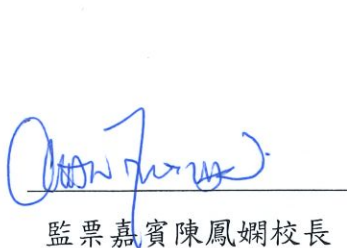 監票嘉賓陳鳳嫻校長